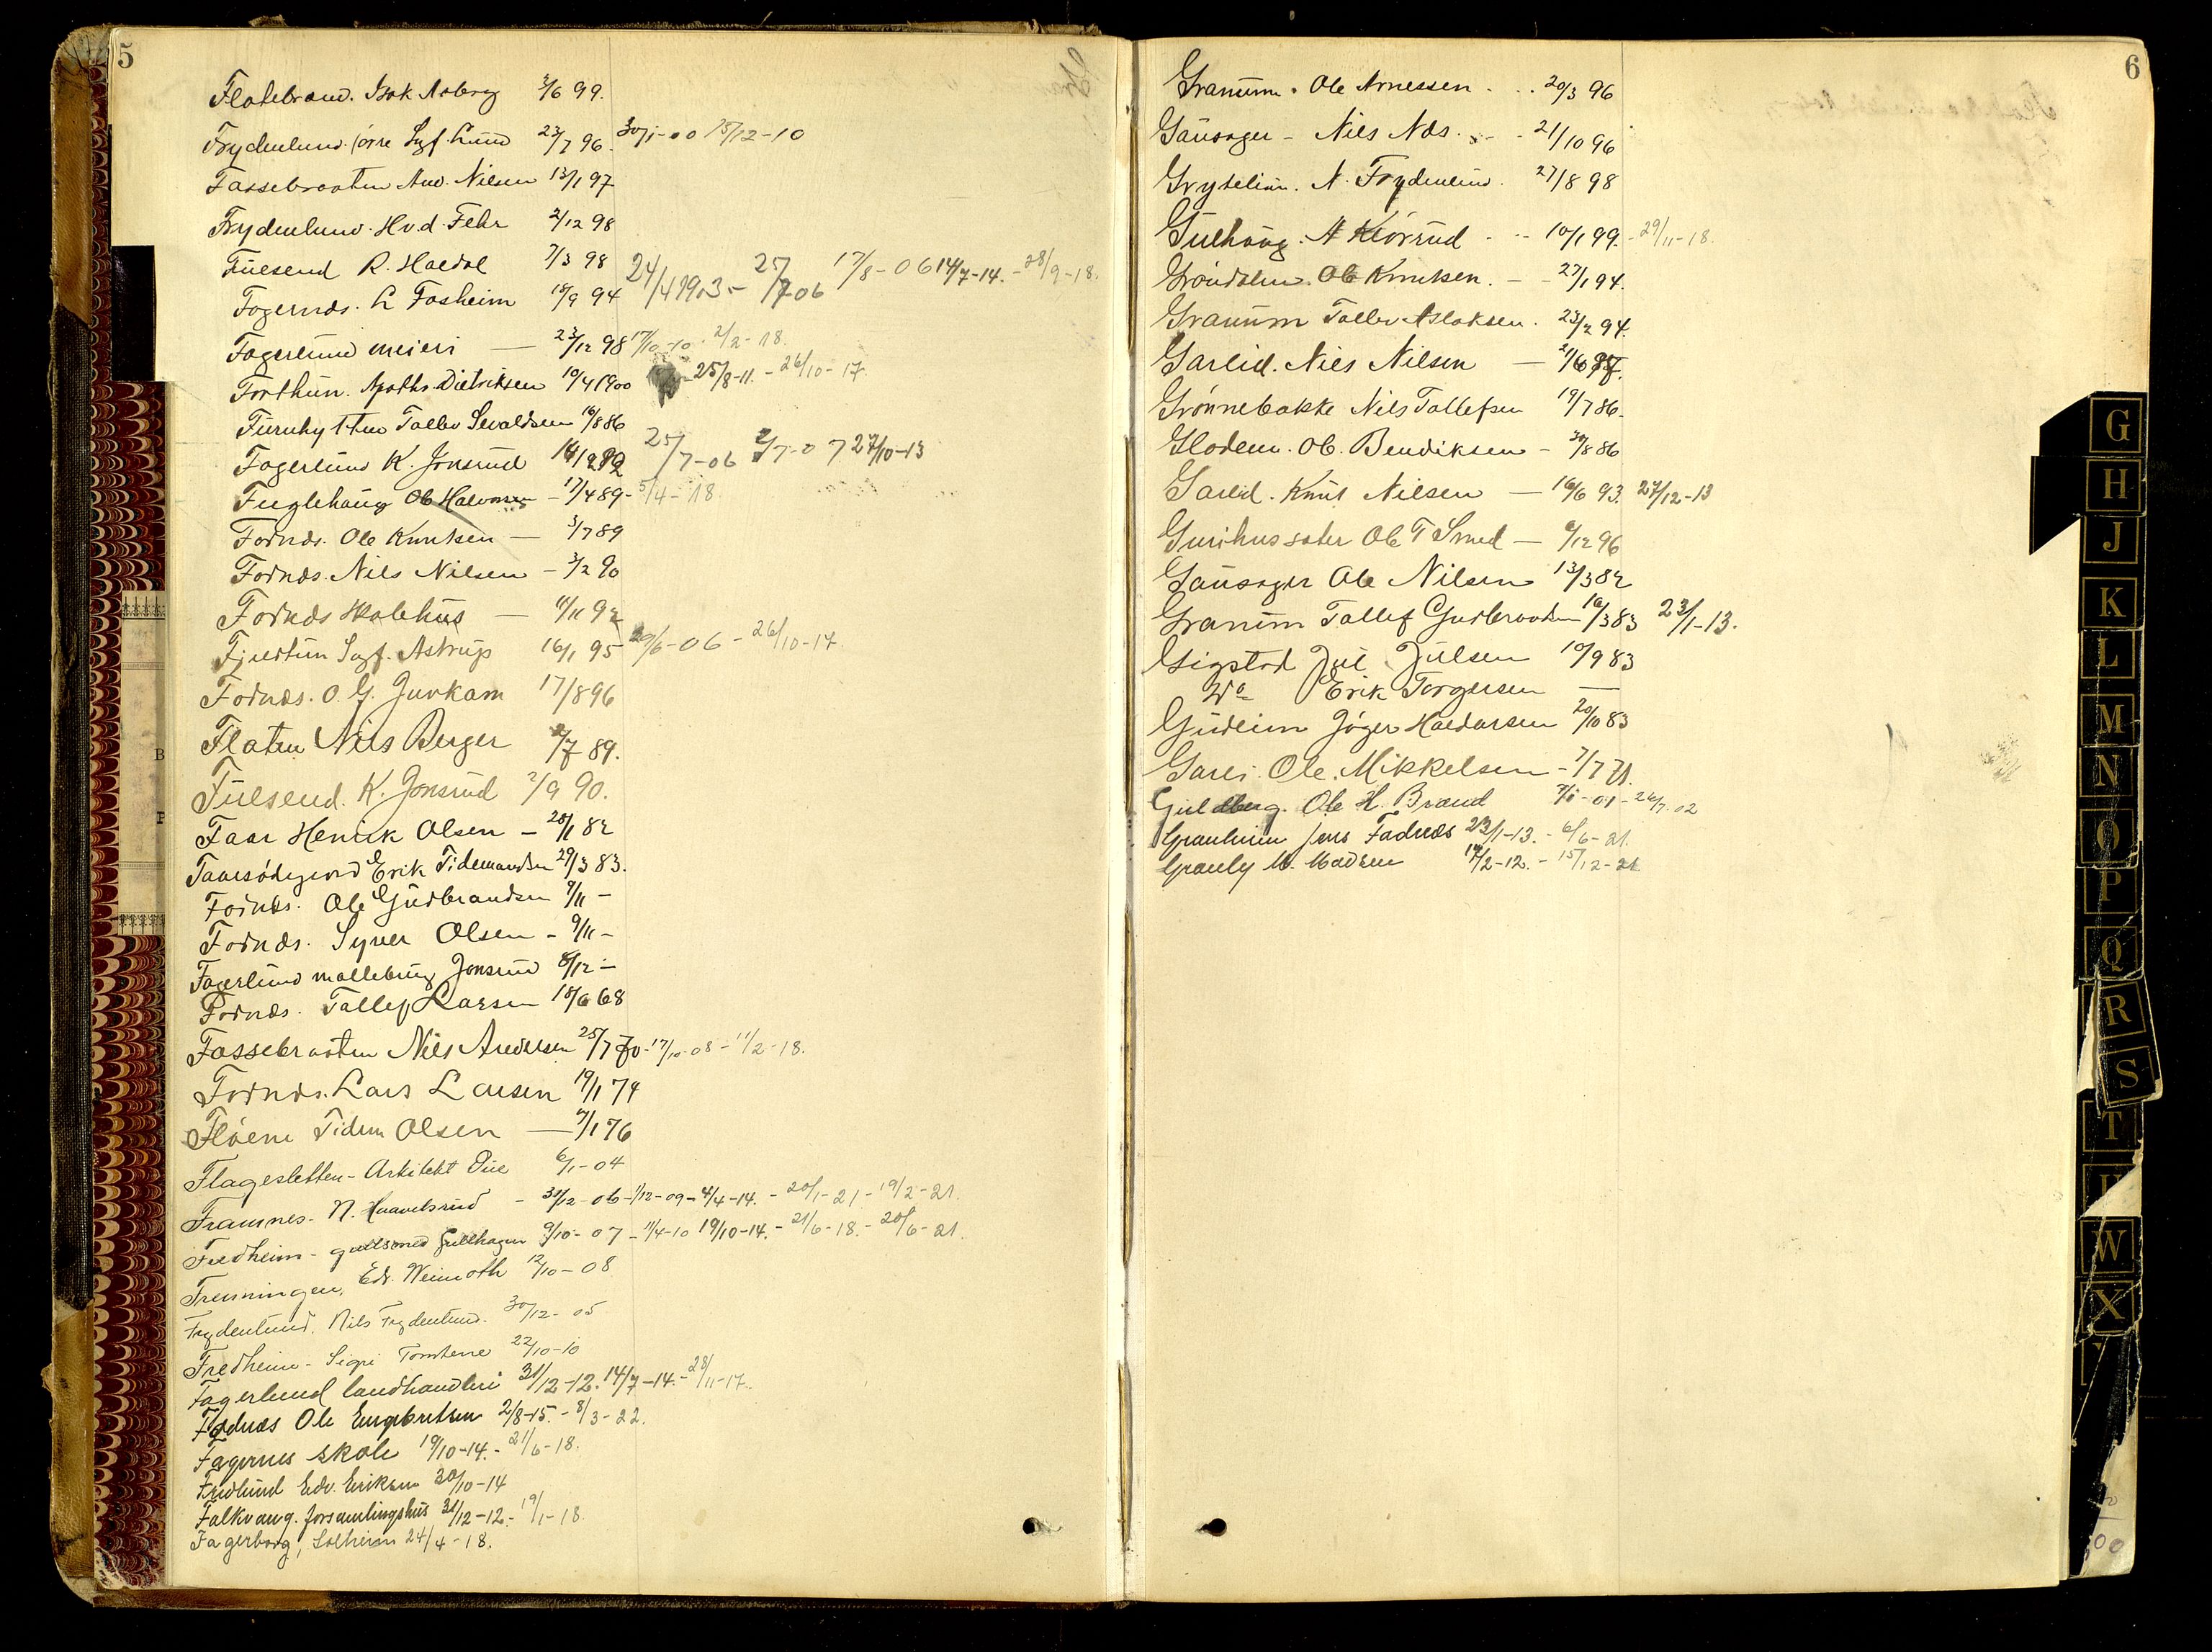 5
Flatebrand. Isak Asberg 3/6 99.
Frydenlund. (øvre Sagf. Lund 23/7 96. 30/1-00 15/12-10
Fassebraaten And. Nilsen 13/1 97
Frydenlund. Hvd. Fehr 2/12 98
Fuelsend R. Haldal 7/3 98
Fagernæs. L Fosheim 18/9 94 24/4 1903- 25/7 06 17/8-06 14/7-14. -28/9-18.
Fagerlund meieri — 23/12 98 17/10-10. 2/2-18.
Forthun. Apoth. Dietriksen 10/4 1900 -25/8-11. -26/10-17
Furuhytten Tallev Sevaldsen 16/8 86
Fagerlund K. Jonsrud 25/7-06 2/7-07 27/10-13
Fuglehaug Ole Halvorsen -17/4 89- 5/4-18.
Fodnæs. Ole Knutsen — 3/7 89
Fodnæs. Nils Nilsen - 3/2 90
Fodnæs Skolehus — 11/11 92
Fjeldtun Sagf. Astrup 16/1 95 20/6-06 -26/10-17.
Fodnæs. O. G. Juvkam 17/8 96
Flaten Nils Berger 2/7 89.
Fuelsend. K. Jonsrud 2/9 90.
Faar Henrik Olsen - 28/1 82
Faarsødegaard Erik Tidemandsen 29/3 83.
Fodnæs. Ole Gudbrandsen 9/11 -
Fodnæs. Syver Olsen - 9/11 -
Fagerlund mallebrug Jonsrud 8/12 -
Fodnæs. Tallef Larsen 18/6 68
Fassebraaten Nils Andersen 25/7 70-17/10-08 - 11/2-18.
Fodnæs. Lars Larsen 19/1 74
Fløene Tidem Olsen — 7/1 76
Flagesletten - Arkitekt Due 6/1-04
Framnes - N. Haavelsrud - 31/12-06-1/12-09-4/4-14. -20/1-21-19/2-21.
Fredheim - guldsmed Gullhagen 9/10-07-11/4-10 19/10-14. -21/6-18. -20/6-21.
Frenningen, Edv. Weinoth 12/10-08
Frydenlund, Nils Frydenlund. 30/12-05
Fredheim - Sigri Tomterne 22/10-10
Fagerlund landhandleri 31/12-12. 14/7-14. -28/11-17.
Fodnæs Ole Engebretsen 2/8-15. -8/3-22.
Fagernes skole 19/10-14. -21/6-18.
Fredlund Edv. Eriksen 30/10-14
Falkvang. forsamlingshus 31/12-12. -19/1-18.
Fagerborg, Solheim 24/4-18.
6
Granum. Ole Arnessen. .. 20/3 96
Gausager - Nils Nds. - 21/10 96
Grytelien. N. Frydenlund. 27/8 98
Gulhaug. A Kiørrud - -- 10/1 99. -29/11-18.
Grøndalen. Ole Knutsen. - - 27/1 94.
Granum Tallev Aslaksen. 23/2 94.
Garlid. Nils Nilsen —
Grønnebakke Nils Tallefsen 19/7 86.
Glodem. Ole. Bendiksen - 30/8 86
Garlid. Knut Nilsen — 16/6 93. 27/12-13
Gurihussater Ole T Smed — 6/12 96
Gausager Ole Nilsen 13/3 82
Granum Tallef Gudbrandsen 16/3 83 23/1-13.
Gigstad Jul Julsen 10/9 83
Do Erik Torgersen —
Gudeim Jøger Haldorsen 20/10 83
Garli. Ole. Mikkelsen - 7/7 71.
Guldberg. Ole H. Brand 7/8-01-26/7.02
Granheim Jens Fadnæs 23/1-13. -6/6-21.
Granly M. Madsen 14/2-12. -15/12-21
G
H
J
K
L
M
N
O
P
Q
R
S
T
W
X